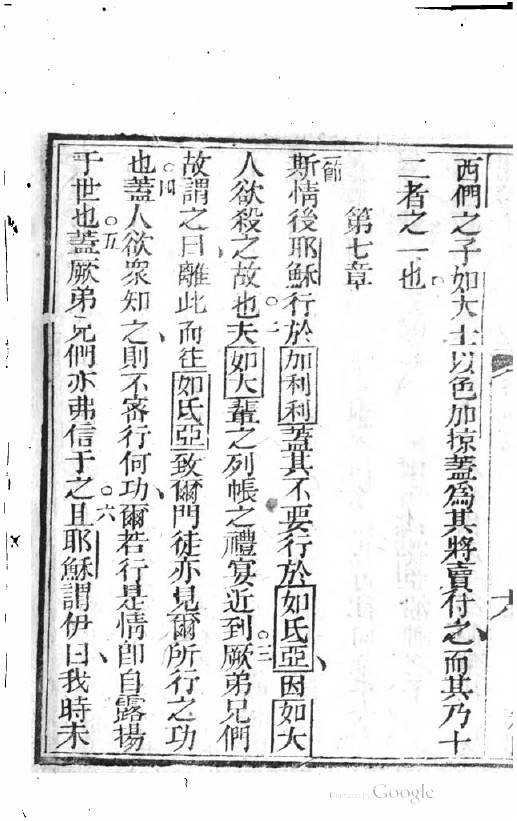 西們之子如大士以色加掠蓋為其將賣付之、而其乃十
二者之一也。
第七章
節斯情後耶穌行於加利利蓋其不要行於如氏亞、因如大
人欲殺之故也。二夫如大輩之列帳之禮宴近到。三厥弟兄們
故謂之曰離此而往如氏亞致爾門徒亦見爾所行之功
也。四蓋人欲衆知之、則不密行何功、爾若行是情卽自露揚
于世也。五蓋厥弟兄們亦弗信于之。六且耶穌謂伊曰、我時未
Digitized by Google